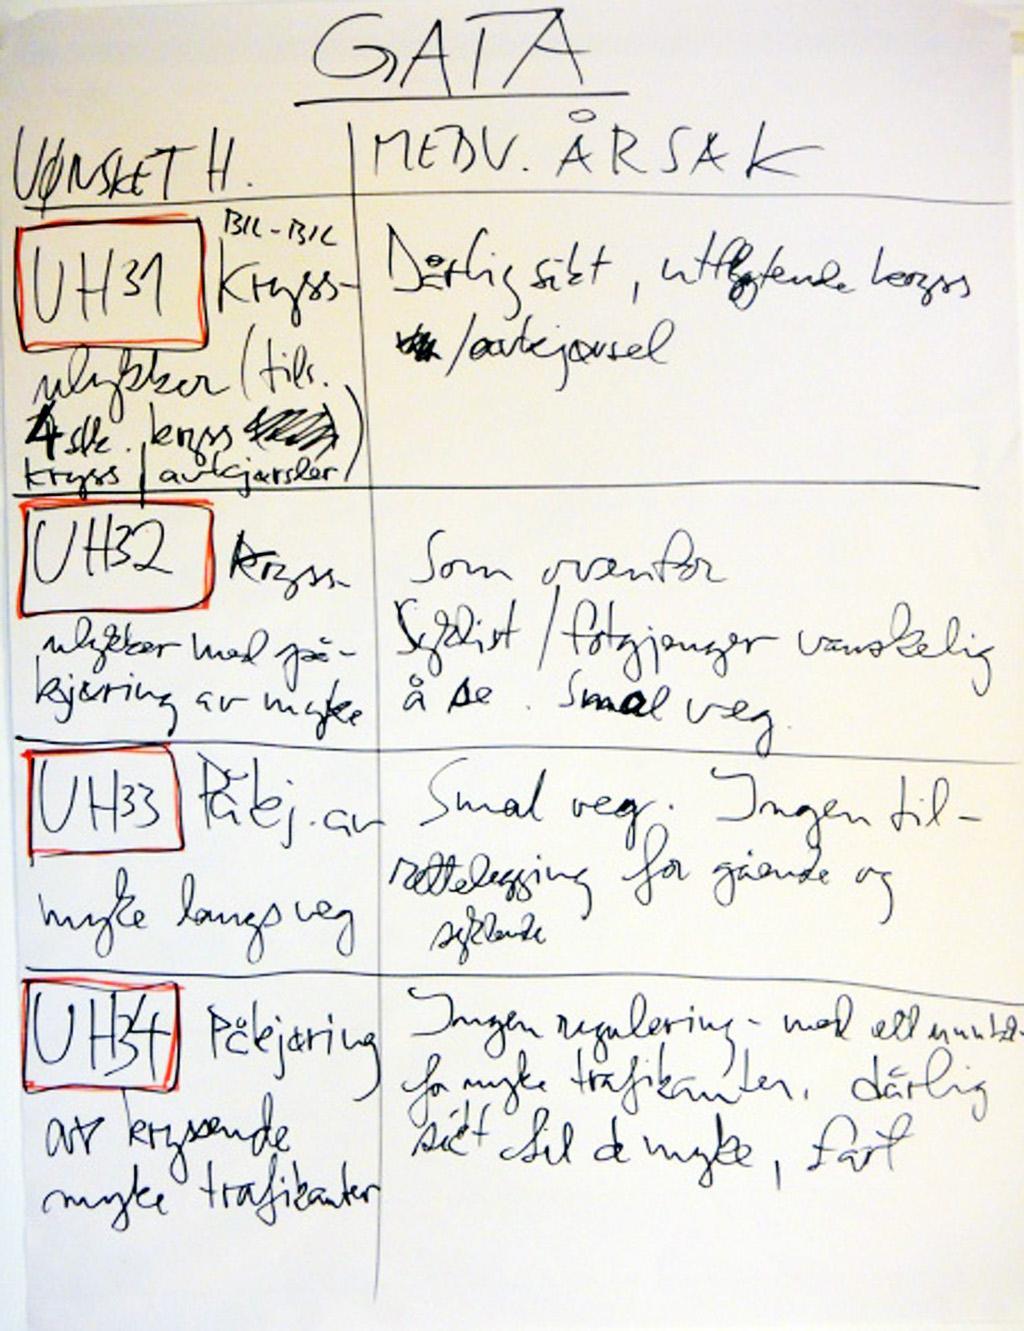 GATA
UØNSKET H.
MEDV. ÅRSAK
UH31 BIL-BIL
Kryss-
ulykker (tils.
4 stk. kryss
kryss / avkjørsler)
Dårlig sikt, kryss
/avkjørsel
UH32 Kryss-
ulykker med på-
kjøring av myke
Som ovenfor
Syklist / fotgjenger vanskelig
å se. Smal veg.
UH33 Påkj. av
myke langs veg
Smal veg. Ingen til-
rettelegging for gående og
syklende
UH34 Påkjøring
av kryssende
myke trafikanter
Ingen regulering - med ett unntak
for myke trafikanter, dårlig
sikt til de myke, fart